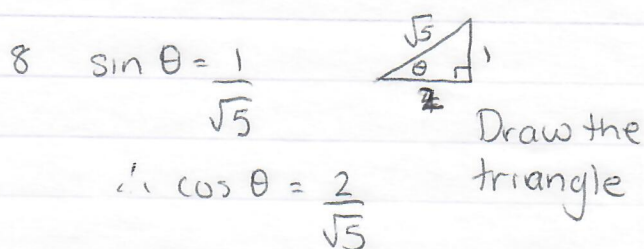 8 sin θ = 1/√5
√5
θ
1
2
Draw the
triangle
∴ cos θ = 2/√5